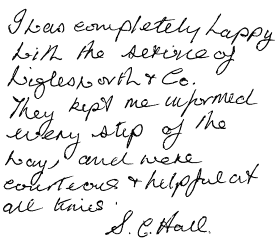 I was completely happy
with the service of
Wiglesworth & Co.
They kept me informed
every step of the
way, and were
courteous & helpful at
all times.
S. C. Hall.